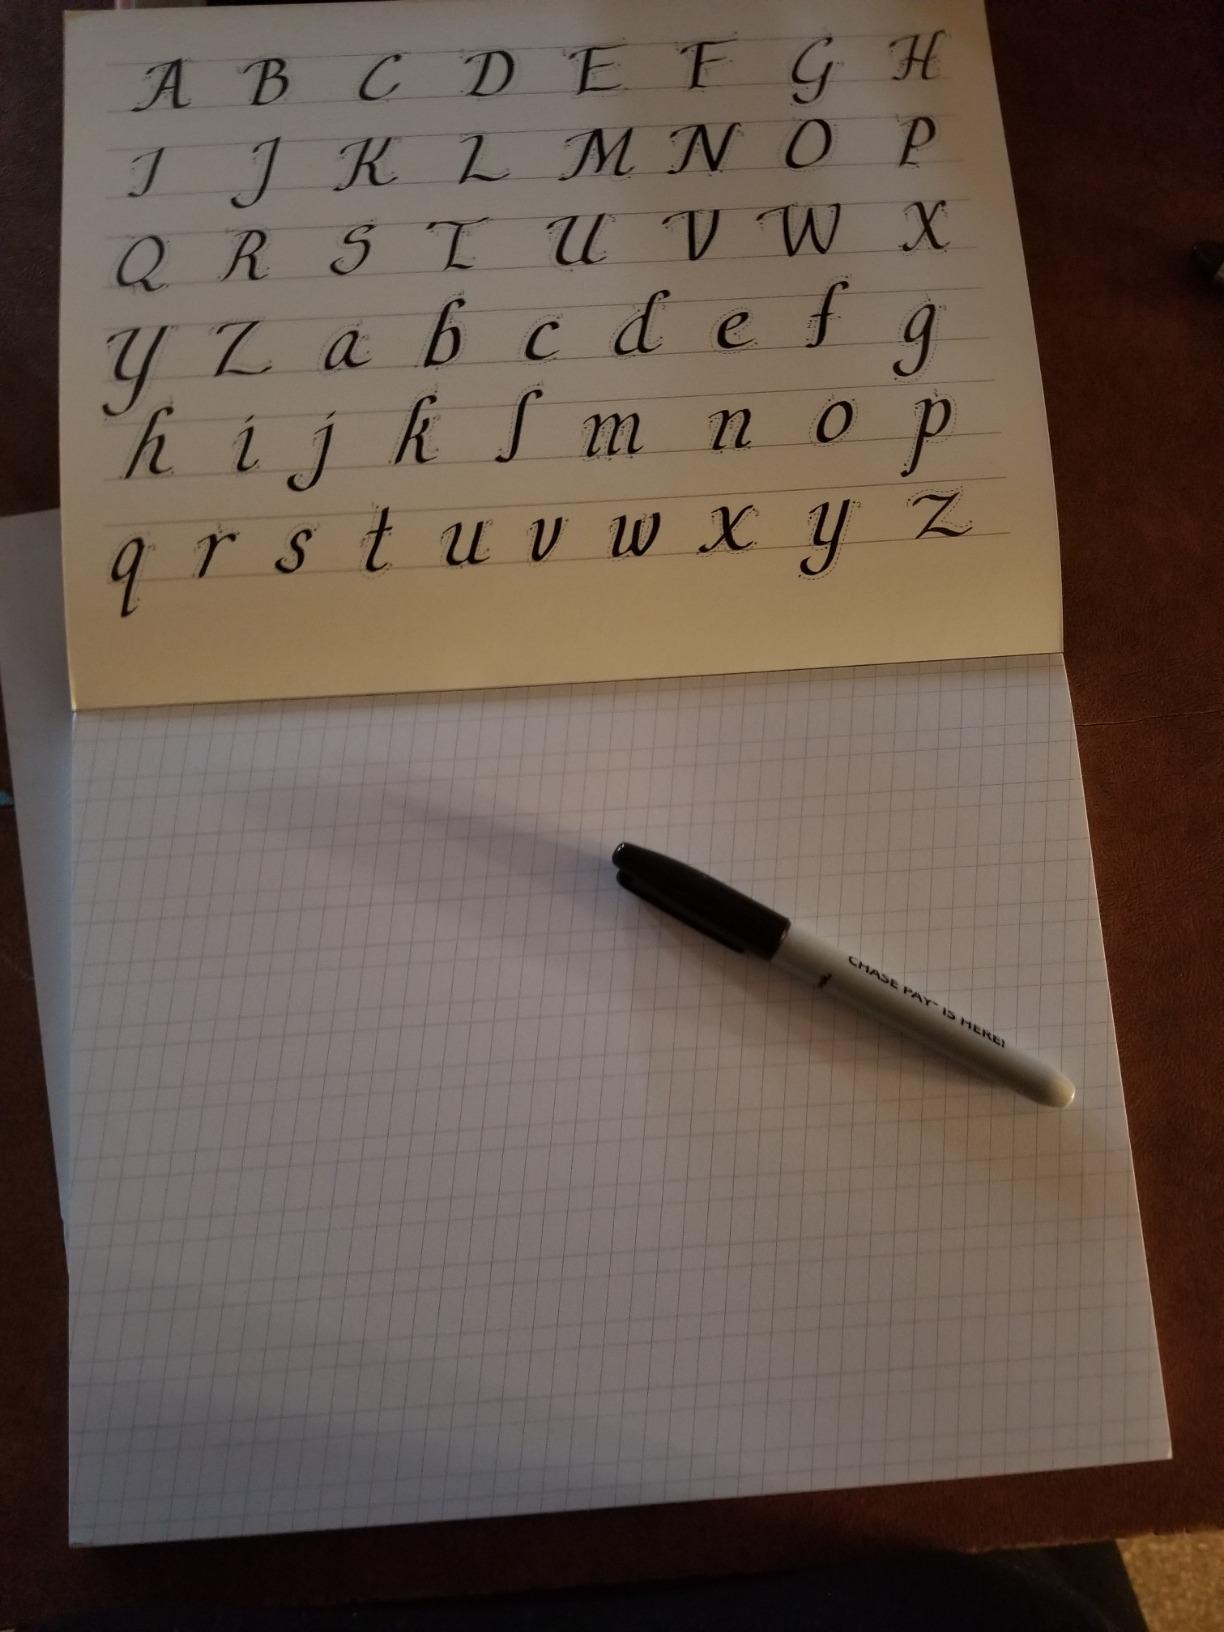 A B C D E F G H
I J K L M N O P
Q R S T U V W X
Y Z a b c d e f g
h i j k l m n o p
q r s t u v w x y z
CHASE PAY™ IS HERE!